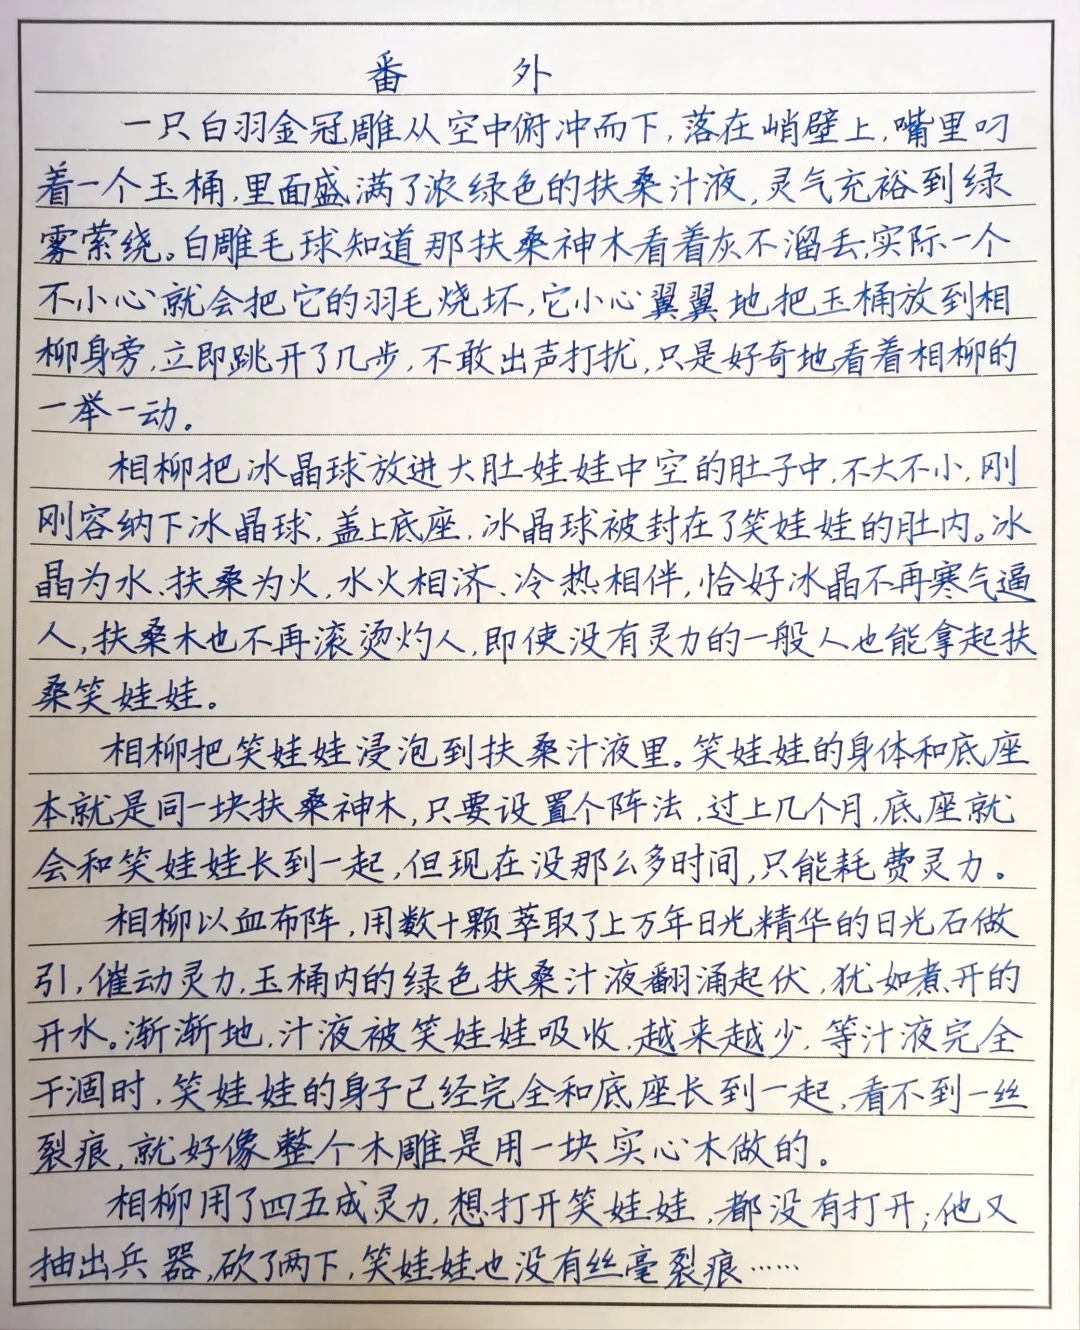 番 外
一只白羽金冠雕从空中俯冲而下，落在峭壁上，嘴里叼
着一个玉桶，里面盛满了浓绿色的扶桑汁液，灵气充裕到绿
雾萦绕。白雕毛球知道那扶桑神木看着灰不溜丢，实际一个
不小心就会把它的羽毛烧坏，它小心翼翼地把玉桶放到相
柳身旁，立即跳开了几步，不敢出声打扰，只是好奇地看着相柳的
一举一动。
相柳把冰晶球放进大肚娃娃中空的肚子中，不大不小，刚
刚容纳下冰晶球，盖上底座，冰晶球被封在了笑娃娃的肚内。冰
晶为水、扶桑为火，水火相济、冷热相伴，恰好冰晶不再寒气逼
人，扶桑木也不再滚烫灼人，即使没有灵力的一般人也能拿起扶
桑笑娃娃。
相柳把笑娃娃浸泡到扶桑汁液里。笑娃娃的身体和底座
本就是同一块扶桑神木，只要设置个阵法，过上几个月，底座就
会和笑娃娃长到一起，但现在没那么多时间，只能耗费灵力。
相柳以血布阵，用数十颗萃取了上万年日光精华的日光石做
引，催动灵力，玉桶内的绿色扶桑汁液翻涌起伏，犹如煮开的
开水。渐渐地，汁液被笑娃娃吸收，越来越少，等汁液完全
干涸时，笑娃娃的身子已经完全和底座长到一起，看不到一丝
裂痕，就好像整个木雕是用一块实心木做的。
相柳用了四五成灵力，想打开笑娃娃，都没有打开；他又
抽出兵器，砍了两下，笑娃娃也没有丝毫裂痕……